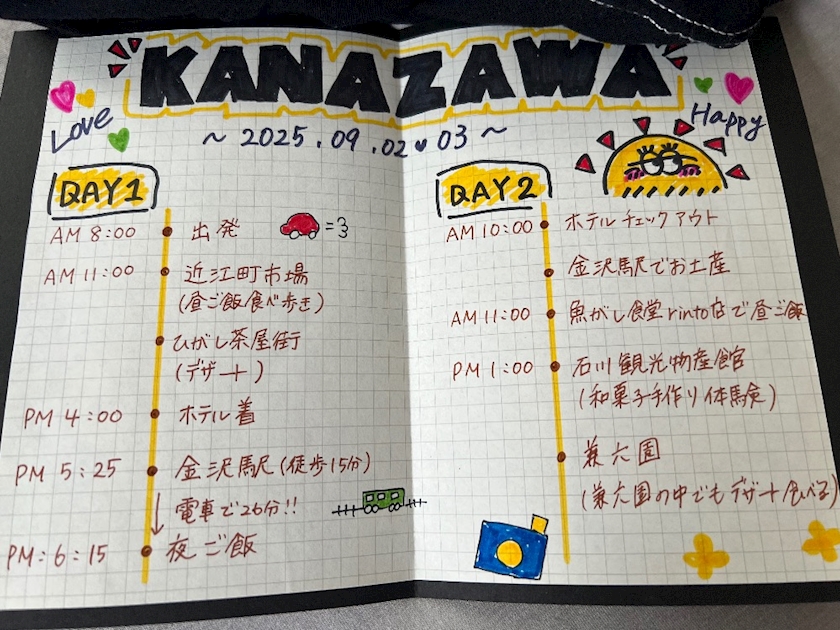 KANAZAWA
Love
Happy
~ 2025.09.02♥03 ~
DAY1
AM 8:00 出発
AM 11:00 近江町市場
(昼ご飯食べ歩き)
ひがし茶屋街
(デザート)
PM 4:00 ホテル着
PM 5:25 金沢駅(徒歩15分)
電車で26分!!
PM:6:15 夜ご飯
DAY2
AM 10:00 ホテルチェックアウト
金沢駅でお土産
AM 11:00 魚がし食堂rinto店で昼ご飯
PM 1:00 石川観光物産館
(和菓子手作り体験)
兼六園
(兼六園の中でもデザート食べる)